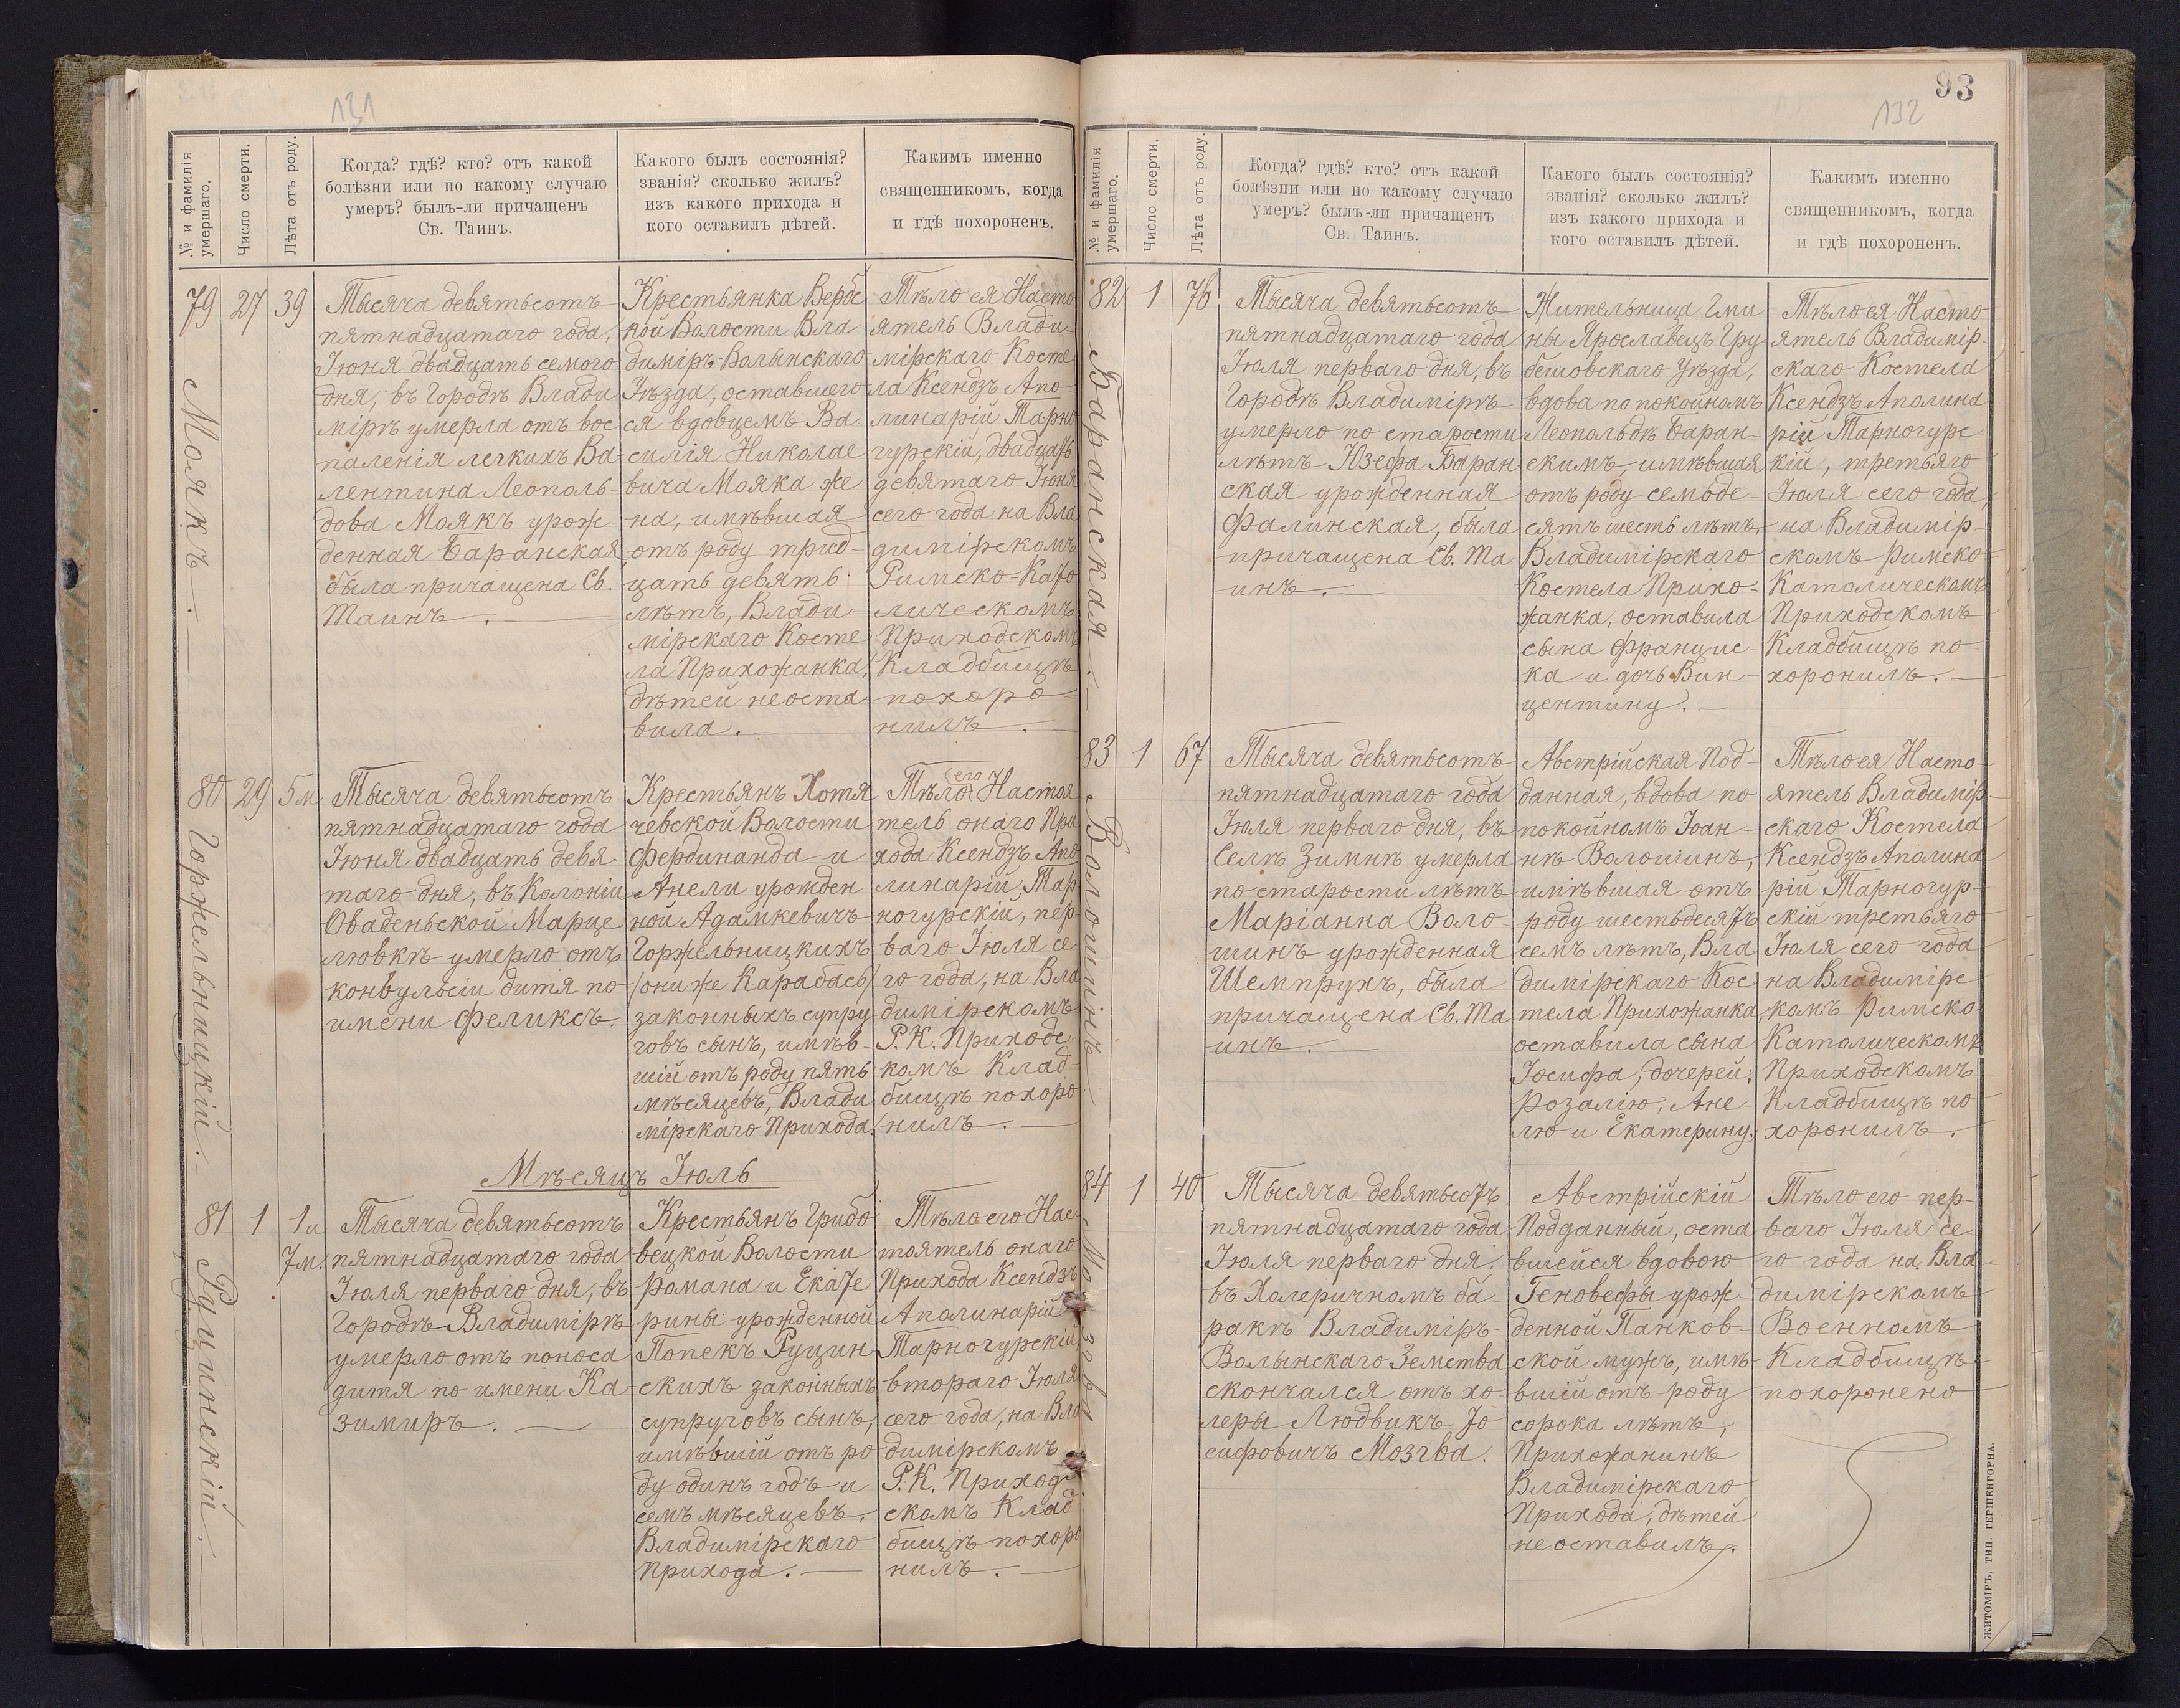 131
№ и фамилія
умершаго.
Число смерти.
Лѣта отъ роду.
Когда? гдѣ? кто? отъ какой
болѣзни или по какому случаю
умеръ? былъ-ли причащенъ
Св. Таинъ.
Какого былъ состоянія?
званія? сколько жилъ?
изъ какого прихода и
кого оставилъ дѣтей.
Какимъ именно
священникомъ, когда
и гдѣ похороненъ.
79
Моякъ.
27
39
Тысяча девятьсотъ
пятнадцатаго года,
Іюня двадцать семого
дня, въ Городѣ Влади
мірѣ умерла отъ вос
паленія легкихъ Ва-
лентина Леополь-
дова Моякъ урож-
денная Баранская
была причащена Св.
Таинъ.
Крестьянка Верб
кой Волости Вла
диміръ-Волынскаго
Уѣзда, оставшего
ся вдовцемъ Ва-
силія Николае
вича Мояка же
на, имѣвшая
отъ роду трид-
цать девять
лѣтъ, Влади-
мірскаго Косте
ла Прихожанка,
дѣтей не оста-
вила.
Тѣло ея Насто
ятель Влади-
мірскаго Косте
ла Ксендзъ Апо-
линарій Тарно
гурскій, двадцать
девятаго Іюня
сего года на Вла
димірскомъ
Римско-Като
лическомъ
Приходскомъ
Кладбищѣ
похоро-
нилъ.
80
Горжельницкій.
29
5 м
Тысяча девятьсотъ
пятнадцатаго года
Іюня двадцать девя
таго дня, въ Колоніи
Оваденьской Марце
ловкѣ умерло отъ
конвульсіи дитя по
имени Феликсъ.
Крестьянъ Хотя
чевской Волости
Фердинанда и
Анели урожден
ной Адамкевичъ
Горжельницкихъ
/они же Карабась/
законныхъ супру
говъ сынъ, имѣв-
шій отъ роду пять
мѣсяцевъ, Влади
мірскаго Прихода.
Тѣло его Настоя
тель онаго При
хода Ксендзъ Апо
линарій Тар-
ногурскій, пер
ваго Іюля се
го года, на Вла
димірскомъ
Р. К. Приходс
комъ Клад-
бищѣ похоро
нилъ.
Мѣсяцъ Іюль
81
Руцинскій.
1
7 м.
Тысяча девятьсотъ
пятнадцатаго года
Іюля перваго дня, въ
Городѣ Владимірѣ
умерло отъ поноса
дитя по имени Ка-
зимиръ.
Крестьянъ Грибо
вецкой Волости
Романа и Екате
рины урожденной
Попекъ Руцин
скихъ законныхъ
супруговъ сынъ,
имѣвшій отъ ро
ду одинъ годъ и
семъ мѣсяцевъ,
Владимірскаго
Прихода.
Тѣло его Нас-
тоятель онаго
Прихода Ксендзъ
Аполинарій
Тарногурскій
втораго Іюля
сего года, на Вла
димірскомъ
Р. К. Приход
скомъ Клад-
бищѣ похоро
нилъ.
93
132
№ и фамилія
умершаго.
Число смерти.
Лѣта отъ роду.
Когда? гдѣ? кто? отъ какой
болѣзни или по какому случаю
умеръ? былъ-ли причащенъ
Св. Таинъ.
Какого былъ состоянія?
званія? сколько жилъ?
изъ какого прихода и
кого оставилъ дѣтей.
Какимъ именно
священникомъ, когда
и гдѣ похороненъ.
82
Баранская.
1
76
Тысяча девятьсотъ
пятнадцатаго года
Іюля перваго дня, въ
Городѣ Владимірѣ
умерло по старости
лѣтъ Юзефа Баран
ская урожденная
Фалинская, была
причащена Св. Та
инъ.
Жительница Гми
ны Ярославецъ Гру
бешовскаго Уѣзда,
вдова по покойномъ
Леопольдѣ Баран-
скимъ, имѣвшая
отъ роду семьде-
сятъ шесть лѣтъ,
Владимірскаго
Костела Прихо-
жанка, оставила
сына Францис-
ка и дочь Вин-
центину.
Тѣло ея Насто
ятель Владимір-
скаго Костела
Ксендзъ Аполина
рій Тарногурс
кій, третьяго
Іюля сего года,
на Владимір-
скомъ Римско-
Католическомъ
Приходскомъ
Кладбищѣ по-
хоронилъ.
83
Волошинъ
1
67
Тысяча девятьсотъ
пятнадцатаго года
Іюля перваго дня, въ
Селѣ Зимнѣ умерла
по старости лѣтъ
Маріанна Воло-
шинъ урожденная
Шемпрухъ, была
причащена Св. Та
инъ.
Австрійская Под-
данная, вдова по
покойномъ Іоан-
нѣ Волошинѣ,
имѣвшая отъ
роду шестьдесятъ
семъ лѣтъ, Вла
димірскаго Кос
тела Прихожанка,
оставила сына
Іосифа, дочерей:
Розалію, Ане-
лю и Екатерину.
Тѣло ея Насто-
ятель Владимір-
скаго Костела
Ксендзъ Аполина
рій Тарногур-
скій третьяго
Іюля сего года
на Владимірс
комъ Римско-
Католическомъ
Приходскомъ
Кладбищѣ по
хоронилъ.
84
Мозгва
1
40
Тысяча девятьсотъ
пятнадцатаго года
Іюля перваго дня,
въ Холеричномъ ба-
ракѣ Владиміръ-
Волынскаго Земства
скончался отъ хо-
леры Людвикъ Іо
сифовичъ Мозгва.
Австрійскій
Подданный, оста
вшейся вдовою
Геновефы урож-
денной Панков-
ской мужъ, имѣ-
вшій отъ роду
сорока лѣтъ,
Прихожанинъ
Владимірскаго
Прихода, дѣтей
не оставилъ.
Тѣло его пер-
ваго Іюля се
го года на Вла-
димірскомъ
Военномъ
Кладбищѣ
похоронено
ЖИТОМІРЪ, ТИП. ГЕРШЕНГОРНА.